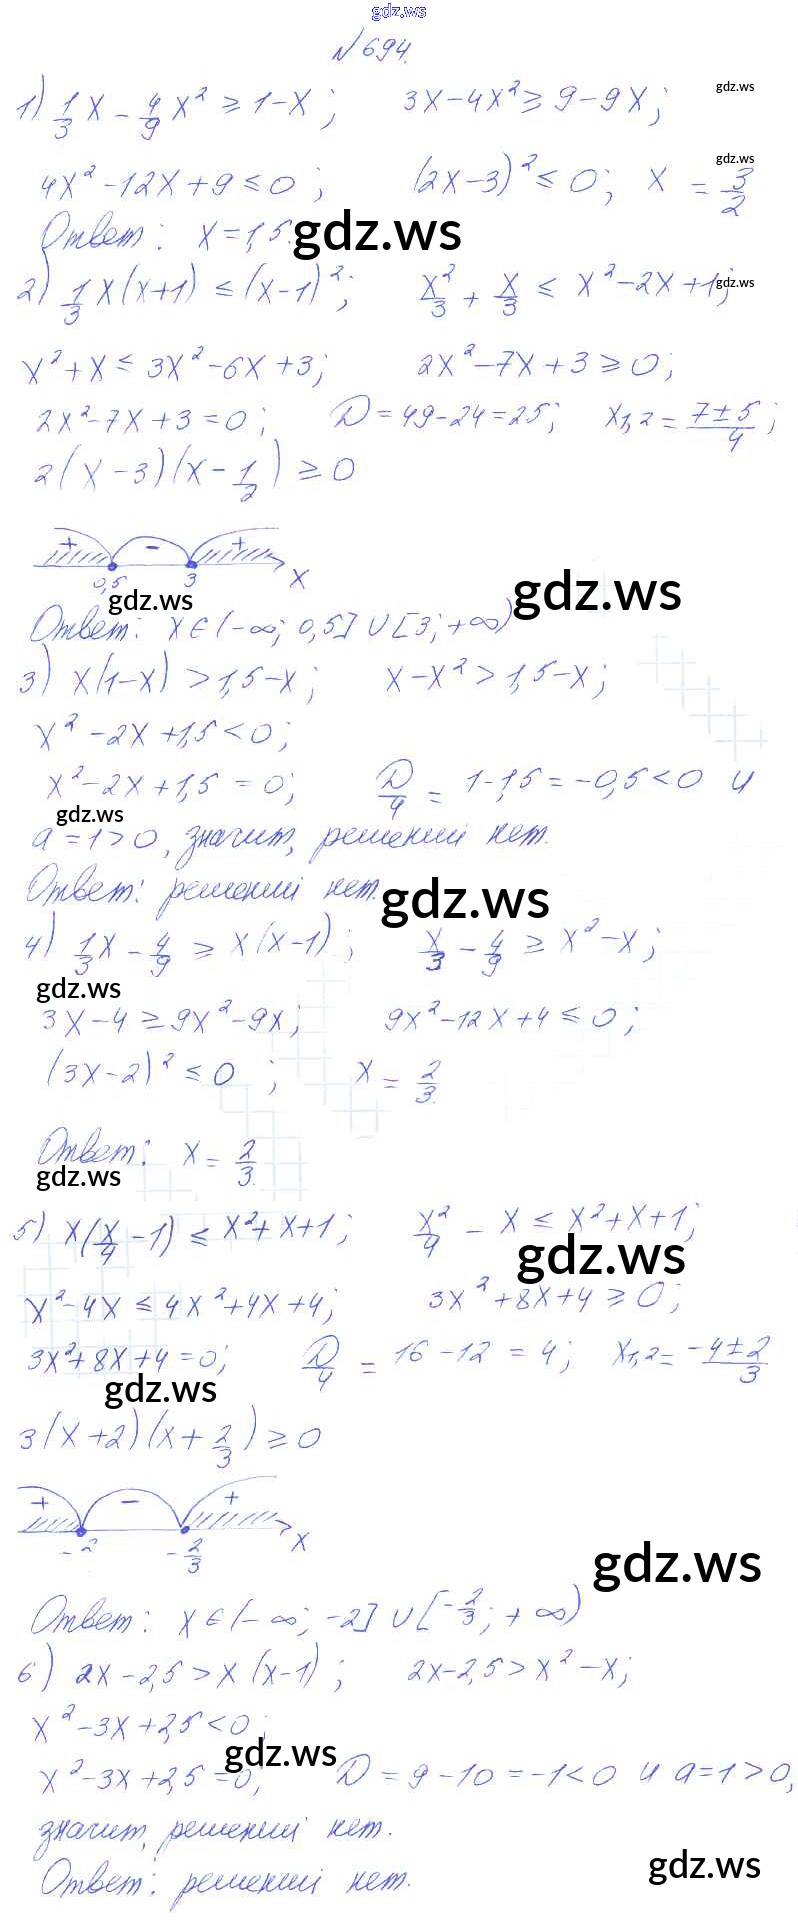 gdz.ws
№694.
1) 1/3 x - 4/9 x² ≥ 1-x; 3x-4x² ≥ 9-9x; gdz.ws
4x²-12x+9 ≤ 0; (2x-3)² ≤ 0; x = 3/2 gdz.ws
Ответ: x=1,5. gdz.ws
2) 1/3 x(x+1) ≤ (x-1)²; x²/3 + x/3 ≤ x²-2x+1; gdz.ws
x²+x ≤ 3x²-6x+3; 2x²-7x+3 ≥ 0;
2x²-7x+3=0; D=49-24=25; x1,2 = (7±5)/4;
2(x-3)(x-1/2) ≥ 0
+ - +
0,5 3 x
gdz.ws gdz.ws
Ответ: x∈(-∞; 0,5]∪[3; +∞)
3) x(1-x) > 1,5-x; x-x² > 1,5-x;
x²-2x+1,5<0;
x²-2x+1,5=0; D/4 = 1-1,5=-0,5<0 и
gdz.ws
a=1>0, значит, решений нет.
Ответ: решений нет. gdz.ws
4) 1/3 x - 4/9 ≥ x(x-1); x/3 - 4/9 ≥ x²-x;
gdz.ws
3x-4 ≥ 9x²-9x; 9x²-12x+4 ≤ 0;
(3x-2)² ≤ 0; x = 2/3.
Ответ: x = 2/3.
gdz.ws
5) x(x/4 - 1) ≤ x²+x+1; x²/4 - x ≤ x²+x+1;
gdz.ws
x²-4x ≤ 4x²+4x+4; 3x²+8x+4 ≥ 0;
3x²+8x+4=0; D/4 = 16-12 = 4; x1,2 = (-4±2)/3
gdz.ws
3(x+2)(x+2/3) ≥ 0
+ - +
-2 -2/3 x
gdz.ws
Ответ: x∈(-∞; -2]∪[-2/3; +∞)
6) 2x-2,5 > x(x-1); 2x-2,5 > x²-x;
x²-3x+2,5<0;
gdz.ws
x²-3x+2,5=0; D=9-10=-1<0 и a=1>0,
значит, решений нет.
gdz.ws
Ответ: решений нет.